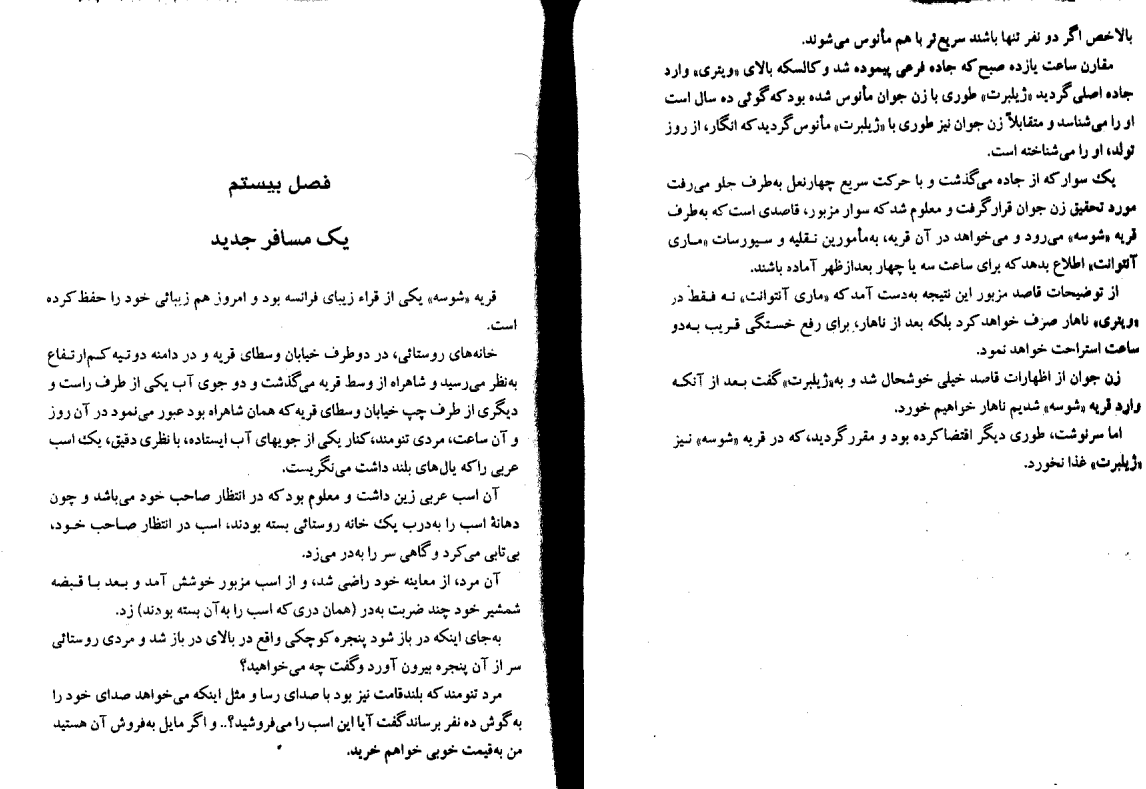 بالاخص اگر دو نفر تنها باشند سریع‌تر با هم مأنوس می‌شوند.
مقارن ساعت یازده صبح که جاده فرعی پیموده شد و کالسکه بالای «ویتری» وارد
جاده اصلی گردید «ژیلبرت» طوری با زن جوان مأنوس شده بود که گوئی ده سال است
او را می‌شناسد و متقابلاً زن جوان نیز طوری با «ژیلبرت» مأنوس گردید که انگار، از روز
تولد، او را می‌شناخته است.
یک سوار که از جاده می‌گذشت و با حرکت سریع چهارنعل به‌طرف جلو می‌رفت
مورد تحقیق زن جوان قرار گرفت و معلوم شد که سوار مزبور، قاصدی است که به‌طرف
قریه «شوسه» می‌رود و می‌خواهد در آن قریه، به‌مأمورین نقلیه و سیورسات «ماری
آنتوانت» اطلاع بدهد که برای ساعت سه یا چهار بعدازظهر آماده باشند.
از توضیحات قاصد مزبور این نتیجه به‌دست آمد که «ماری آنتوانت» نه فقط در
«ویتری» ناهار صرف خواهد کرد بلکه بعد از ناهار، برای رفع خستگی قریب به‌دو
ساعت استراحت خواهد نمود.
زن جوان از اظهارات قاصد خیلی خوشحال شد و به«ژیلبرت» گفت بعد از آنکه
وارد قریه «شوسه» شدیم ناهار خواهیم خورد.
اما سرنوشت، طوری دیگر اقتضا کرده بود و مقرر گردید، که در قریه «شوسه» نیز
«ژیلبرت» غذا نخورد.
فصل بیستم
یک مسافر جدید
قریه «شوسه» یکی از قراء زیبای فرانسه بود و امروز هم زیبائی خود را حفظ کرده
است.
خانه‌های روستائی، در دوطرف خیابان وسطای قریه و در دامنه دوتپه کم‌ارتفاع
به‌نظر می‌رسید و شاهراه از وسط قریه می‌گذشت و دو جوی آب یکی از طرف راست و
دیگری از طرف چپ خیابان وسطای قریه که همان شاهراه بود عبور می‌نمود در آن روز
و آن ساعت، مردی تنومند، کنار یکی از جویهای آب ایستاده، با نظری دقیق، یک اسب
عربی را که یال‌های بلند داشت می‌نگریست.
آن اسب عربی زین داشت و معلوم بود که در انتظار صاحب خود می‌باشد و چون
دهانهٔ اسب را به‌درب یک خانه روستائی بسته بودند، اسب در انتظار صاحب خود،
بی‌تابی می‌کرد و گاهی سر را به‌در می‌زد.
آن مرد، از معاینه خود راضی شد، و از اسب مزبور خوشش آمد و بعد با قبضه
شمشیر خود چند ضربت به‌در (همان دری که اسب را به‌آن بسته بودند) زد.
به‌جای اینکه در باز شود پنجره کوچکی واقع در بالای در باز شد و مردی روستائی
سر از آن پنجره بیرون آورد و گفت چه می‌خواهید؟
مرد تنومند که بلندقامت نیز بود با صدای رسا و مثل اینکه می‌خواهد صدای خود را
به‌گوش ده نفر برساند گفت آیا این اسب را می‌فروشید؟.. و اگر مایل به‌فروش آن هستید
من به‌قیمت خوبی خواهم خرید.